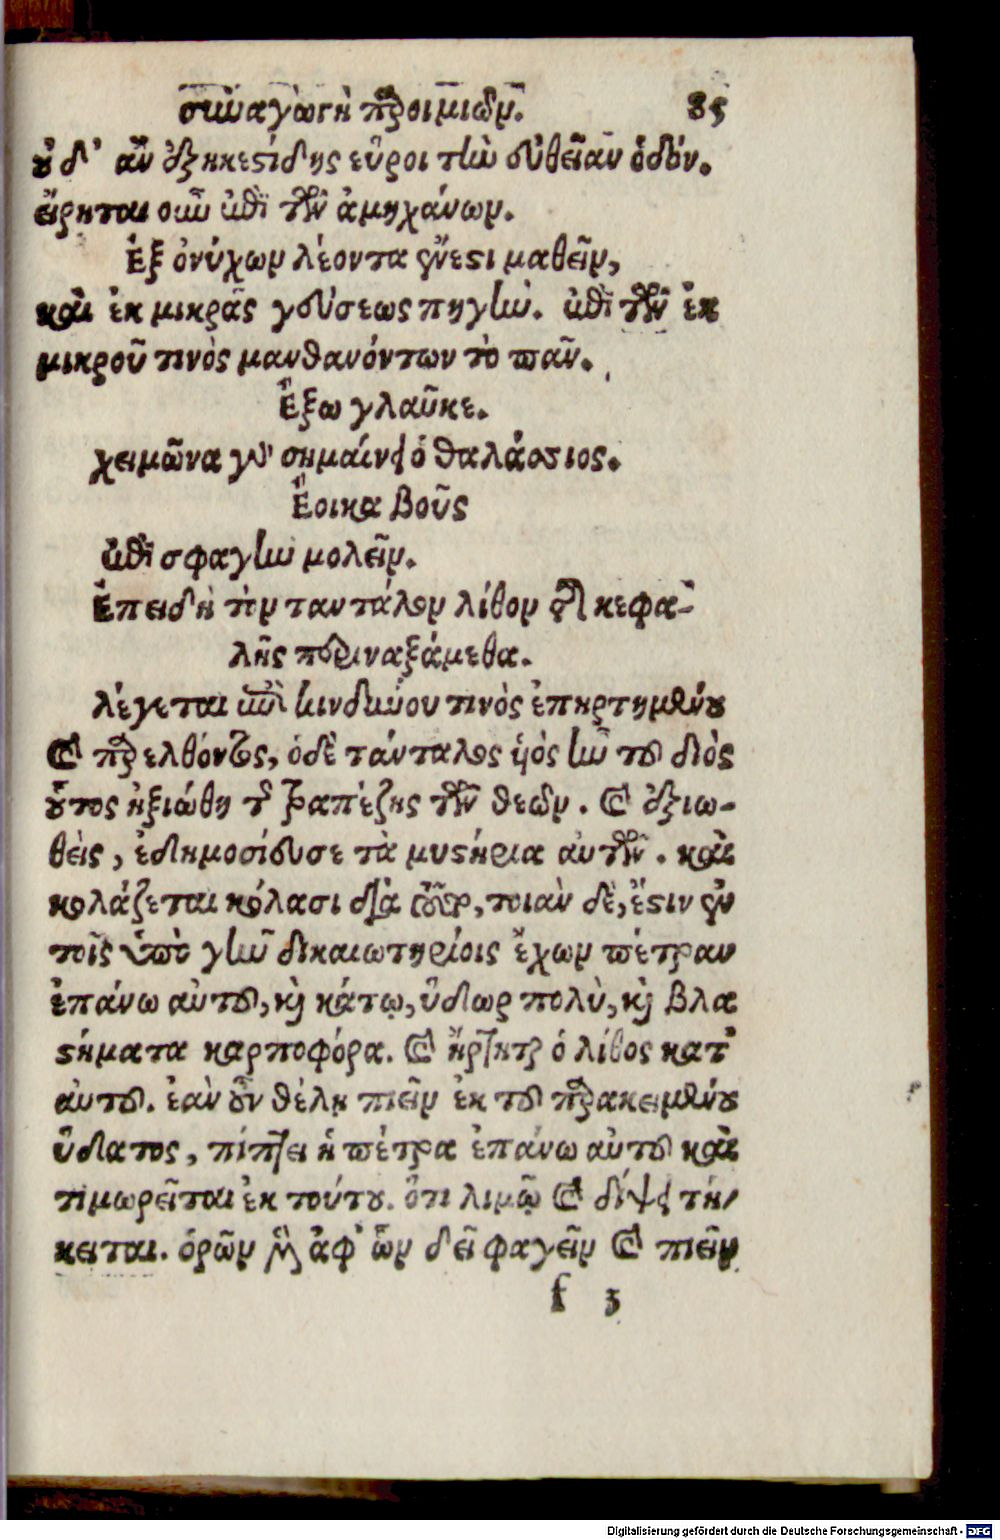 συναγωγὴ παροιμιῶν. 85
οὐδ' ἂν ἐξηκεστίδης εὕροι τὴν εὐθεῖαν ὁδόν.
εἴρηται οὖν ἐπὶ τῶν ἀμηχάνων.
Ἐξ ὀνύχων λέοντα ἔνεστι μαθεῖν,
καὶ ἐκ μικρᾶς γεύσεως πηγήν. ἐπὶ τῶν ἐκ
μικροῦ τινὸς μανθανόντων τὸ πᾶν.
Ἔξω γλαῦκε.
χειμῶνα γὰρ σημαίνει ὁ θαλάσσιος.
Ἔοικα βοῦς
ἐπὶ σφαγὴν μολεῖν.
Ἐπειδὴ τὸν ταντάλου λίθον τῆς κεφα-
λῆς διετιναξάμεθα.
λέγεται ἐπὶ κινδύνου τινὸς ἐπηρτημένου
καὶ παρελθόντος, ὁ δὲ τάνταλος υἱὸς ἦν τοῦ διὸς
οὗτος ἠξιώθη τῆς τραπέζης τῶν θεῶν. καὶ ἀξιω-
θεὶς, ἐδημοσίευσε τὰ μυστήρια αὐτῶν. καὶ
κολάζεται κόλασι διὰ τοῦτο, τοιὰν δὲ, ἔστιν ἐν
τοῖς ὑπὸ γῆν δικαιωτηρίοις ἔχων πέτραν
ἐπάνω αὐτοῦ, καὶ κάτω, ὕδωρ πολὺ, καὶ βλα
στήματα καρποφόρα. καὶ ἤρτηται ὁ λίθος κατ'
αὐτοῦ. ἐὰν οὖν θέλῃ πιεῖν ἐκ τοῦ παρακειμένου
ὕδατος, πίπτει ἡ πέτρα ἐπάνω αὐτοῦ καὶ
τιμωρεῖται ἐκ τούτου. ὅτι λιμῷ καὶ δίψει τή-
κεται. ὁρῶν μὲν ἀφ' ὧν δεῖ φαγεῖν καὶ πιεῖν
f 3
Digitalisierung gefördert durch die Deutsche Forschungsgemeinschaft - DFG